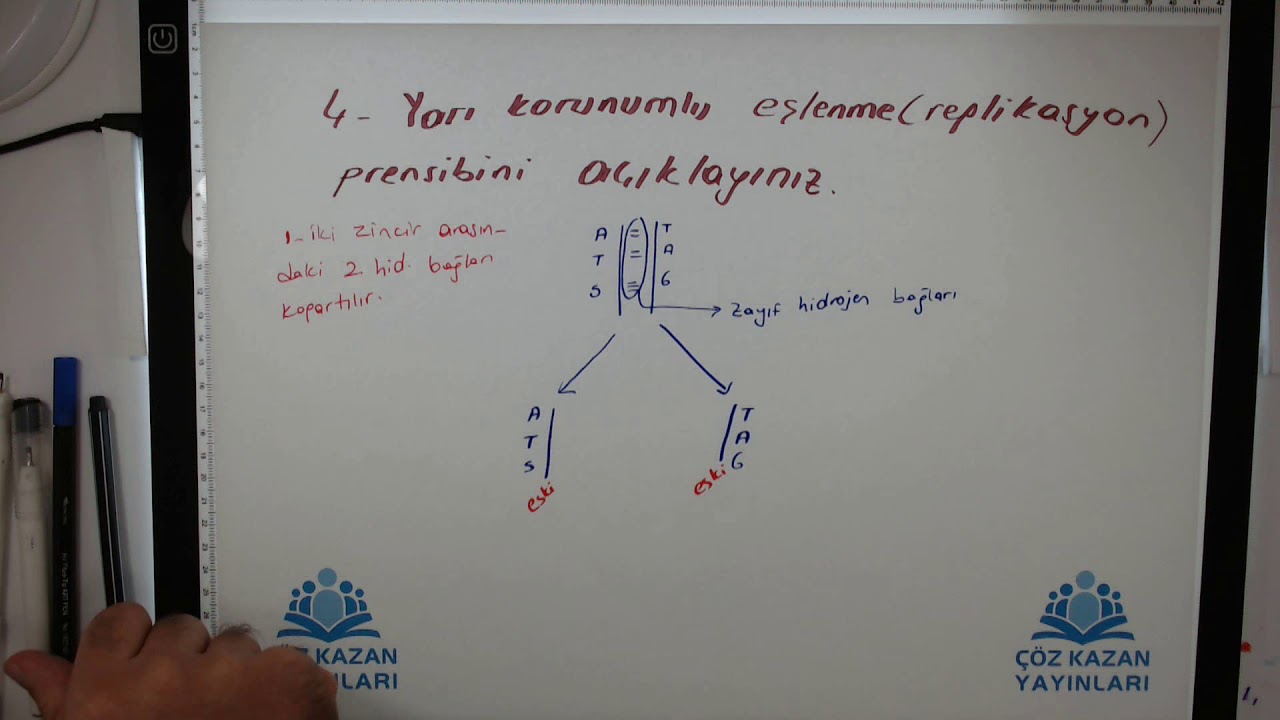 4- Yarı korunumlu eşlenme (replikasyon)
prensibini açıklayınız.
1- iki zincir arasın-
daki 2. hid. bağları
kopartılır.
A = T
T = A
S ≡ G
zayıf hidrojen bağları
A T
T A
S G
eski eski
ÇÖZ KAZAN
YAYINLARI
ÇÖZ KAZAN
YAYINLARI